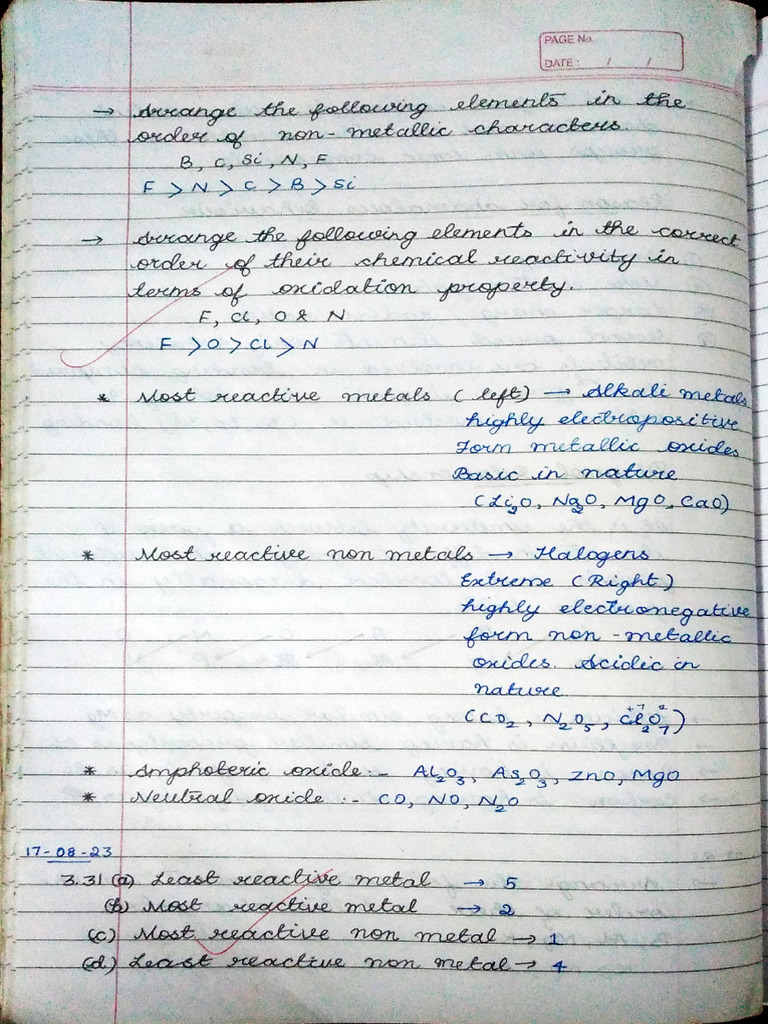 PAGE No.
DATE: / /
→ Arrange the following elements in the
order of non-metallic characters.
B, C, Si, N, F
F > N > C > B > Si
→ Arrange the following elements in the correct
order of their chemical reactivity in
terms of oxidation property.
F, Cl, O & N
F > O > Cl > N
* Most reactive metals (left) → Alkali metals
highly electropositive
Form metallic oxides
Basic in nature
(Li₂O, Na₂O, MgO, CaO)
* Most reactive non metals → Halogens
Extreme (Right)
highly electronegative
form non-metallic
oxides. Acidic in
nature
(CO₂, N₂O₅, Cl₂O₇)
* Amphoteric oxide:- Al₂O₃, As₂O₃, ZnO, MgO
* Neutral oxide :- CO, NO, N₂O
17-08-23
3.31 (a) Least reactive metal → 5
(b) Most reactive metal → 2
(c) Most reactive non metal → 1
(d) Least reactive non metal → 4